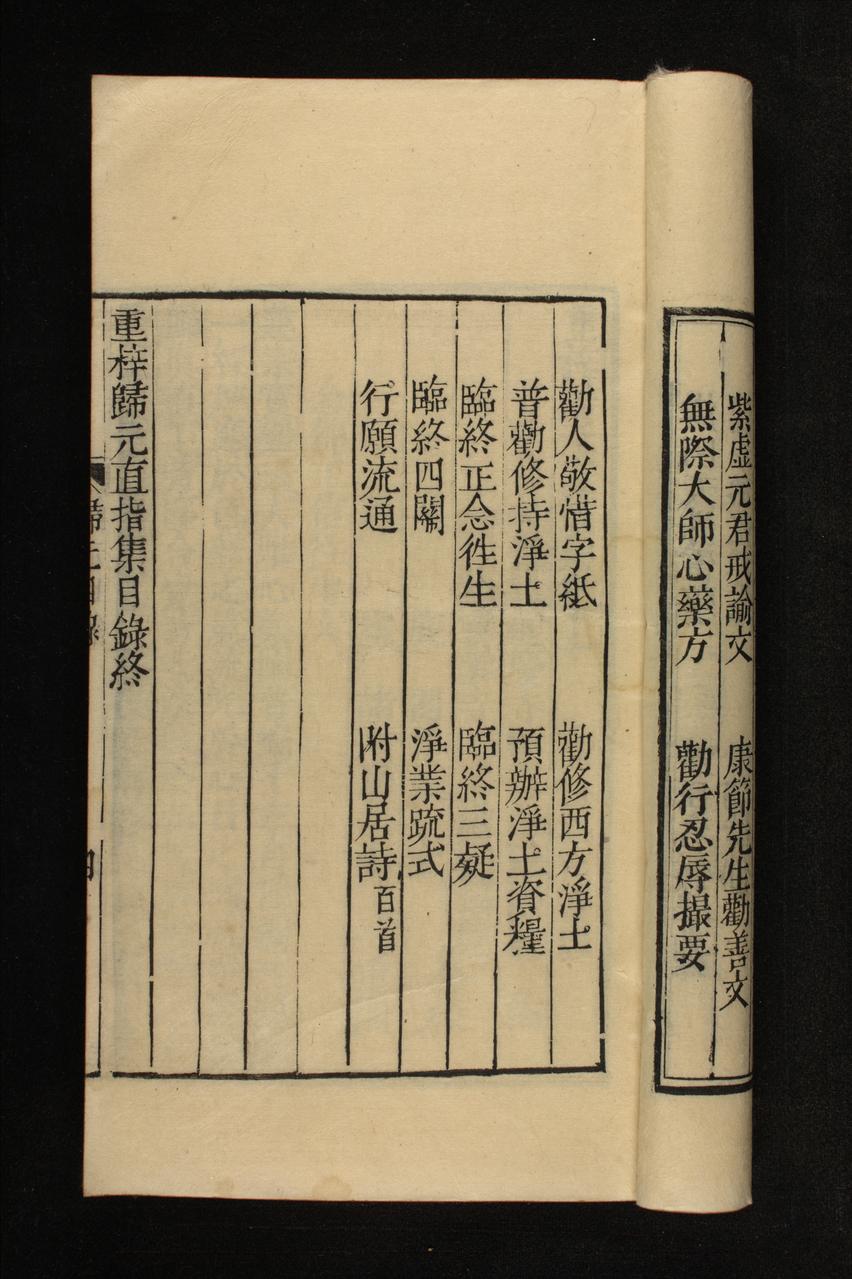 紫虛元君戒諭文　康節先生勸善文
無際大師心藥方　勸行忍辱撮要
勸人敬惜字紙　勸修西方淨土
普勸修持淨土　預辦淨土資糧
臨終正念徃生　臨終三疑
臨終四關　淨業疏式
行願流通　附山居詩百首
重梓歸元直指集目錄終